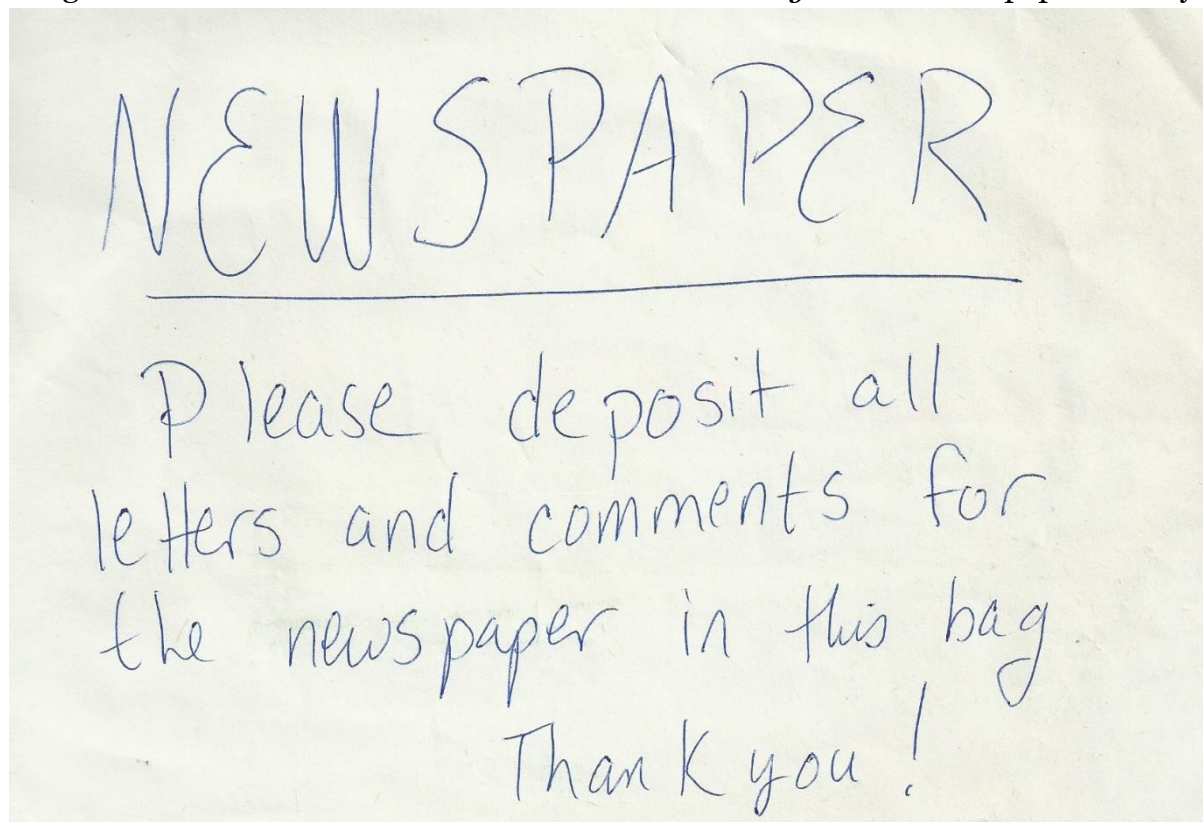 NEWSPAPER
Please deposit all
letters and comments for
the newspaper in this bag.
Thank you!